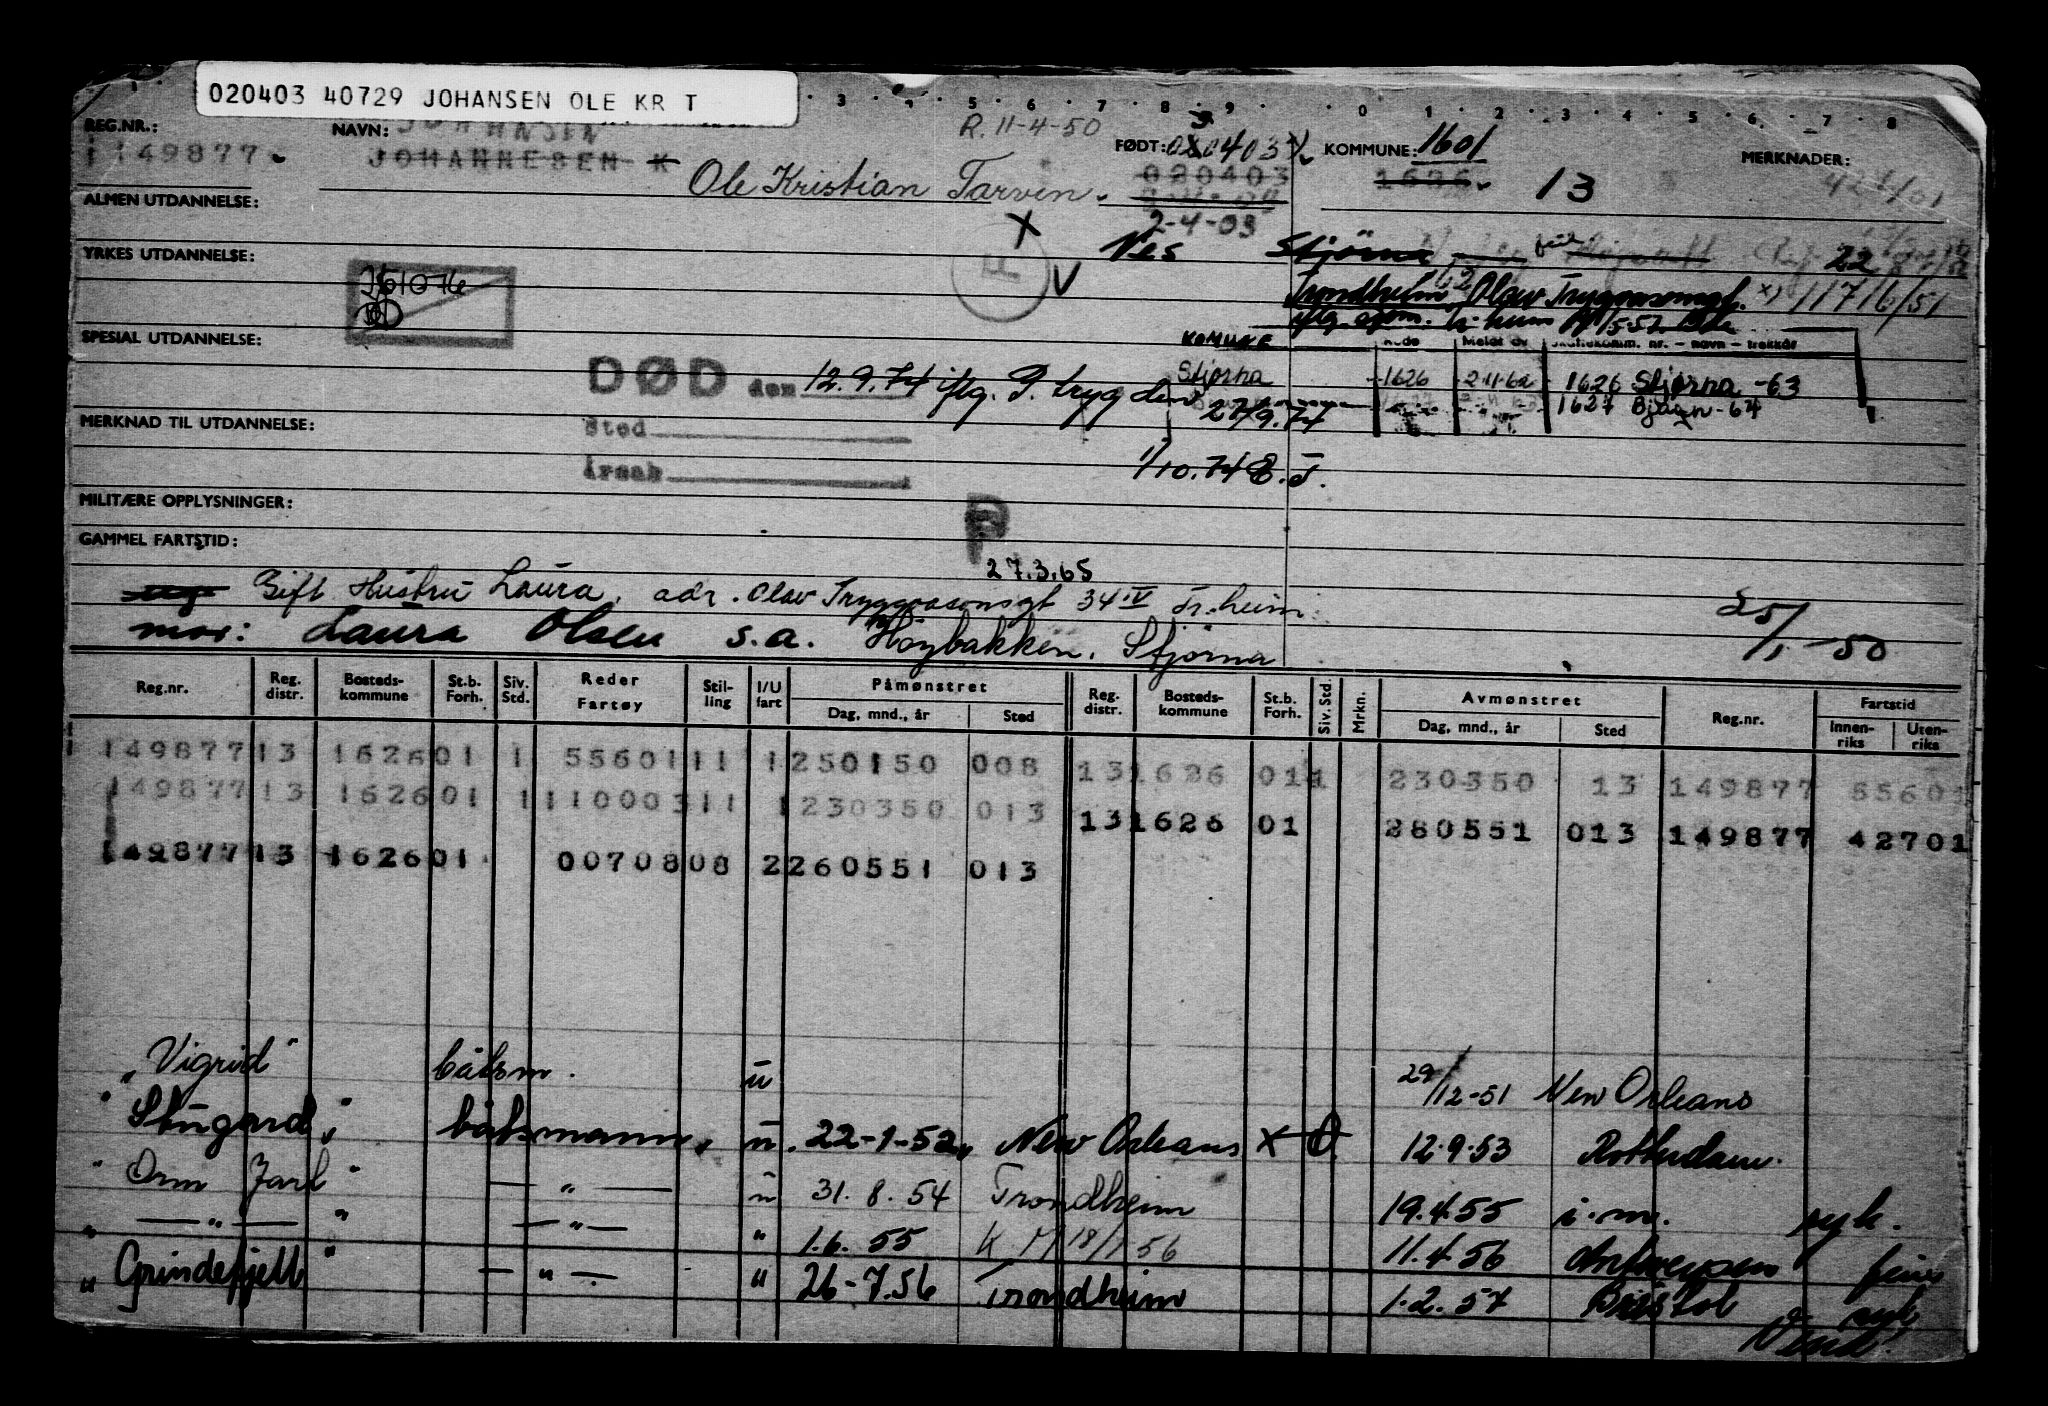 020403 40729 JOHANSEN OLE KR T
3 4 5 6 7 8 9 0 1 2 3 4 5 6 7 8
REG.NR.: NAVN: JOHANSEN R. 11-4-50 FØDT: 020403 KOMMUNE: 1601 MERKNADER:
149877 JOHANNESEN K Ole Kristian Tarven. 020403 1626 13
ALMEN UTDANNELSE: 2-4-03
Nes Stjørna 22
YRKES UTDANNELSE:
251076 Trondheim, Olav Tryggvasonsgt. x) 1176/51
SPESIAL UTDANNELSE: KOMUNE
DØD den 12.9.74 iflg. P. trygden Stjørna 1626 2-11-62 1626 Stjørna -63
27/9.74 1627 Bjugn -64
MERKNAD TIL UTDANNELSE: Sted
Årsak 1/10.74 E.T.
MILITÆRE OPPLYSNINGER: P
GAMMEL FARTSTID:
27.3.65
Gift Hustru Laura, adr. Olav Tryggvasonsgt 34 IV Tr.heim.
mor: Laura Olsen s.a. Høybakken, Stjørna 25/1-50
Reg.nr. Reg. distr. Bosteds-kommune St.b. Forh. Siv. Std. Reder Fartøy Stil-ling I/U fart Påmønstret Reg. distr. Bosteds-kommune St.b. Forh. Siv. Std. Mrkn. Avmønstret Reg.nr. Fartstid
Dag, mnd., år Sted Dag, mnd., år Sted Innen-riks Uten-riks
149877 13 1626 01 1 55601 11 1 250150 008 13 1626 01 1 230350 13 149877 55601
149877 13 1626 01 1 110003 11 1 230350 013 13 1626 01 280551 013 149877 42701
149877 13 1626 01 00708 08 2 260551 013
"Vigrid" båtsm. u 29/12-51 New Orleans
"Stugard" båtsmann, u. 22-1-52 New Orleans x O 12.9.53 Rotterdam.
"Orm Jarl" — " — u 31.8.54 Trondheim 19.4.55 i.m. syk.
" — " — " — " — " 1.6.55 K M 18/1 56 11.4.56 Antwerpen
"Grindefjell" — " — " 26-7.56 Trondheim 1.2.57 Bristol syk
Vend!